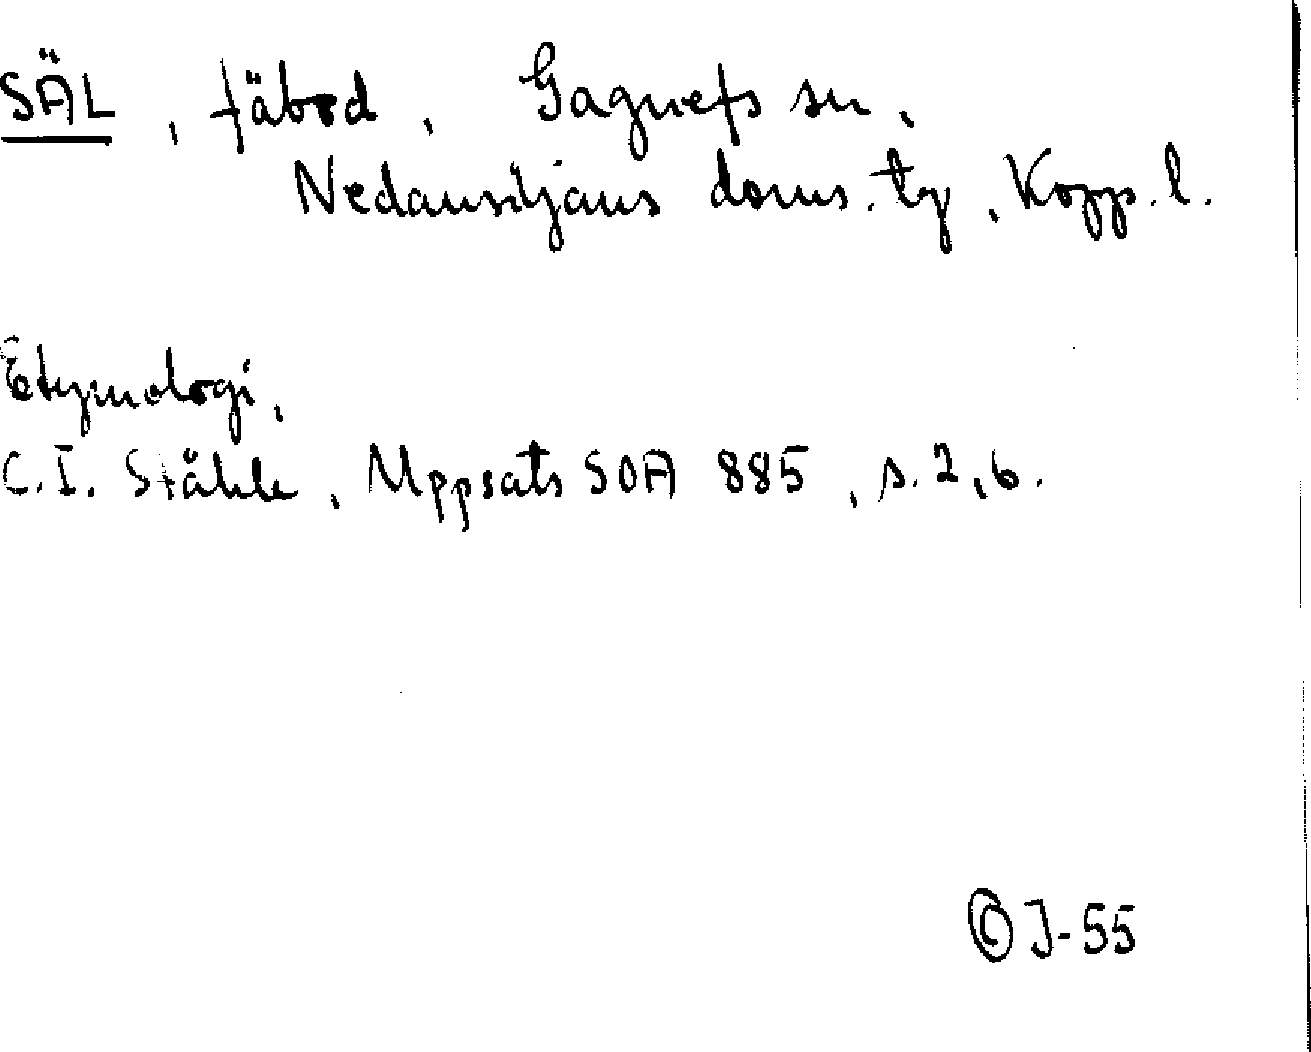 SÄL, fäbod, Gagnefs sn,
Nedansiljans doms. tg, Kopp. l.
Etymologi,
C.I. Ståhle, Uppsats SOA 885, s. 2, 6.
© J-55